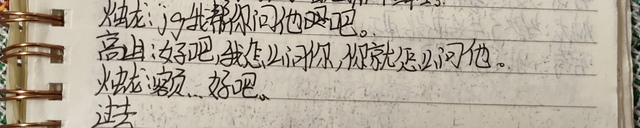 烛龙:jg我帮你问他吧。
高山:好吧,我怎么问你,你就怎么问他。
烛龙:额…好吧。
过去